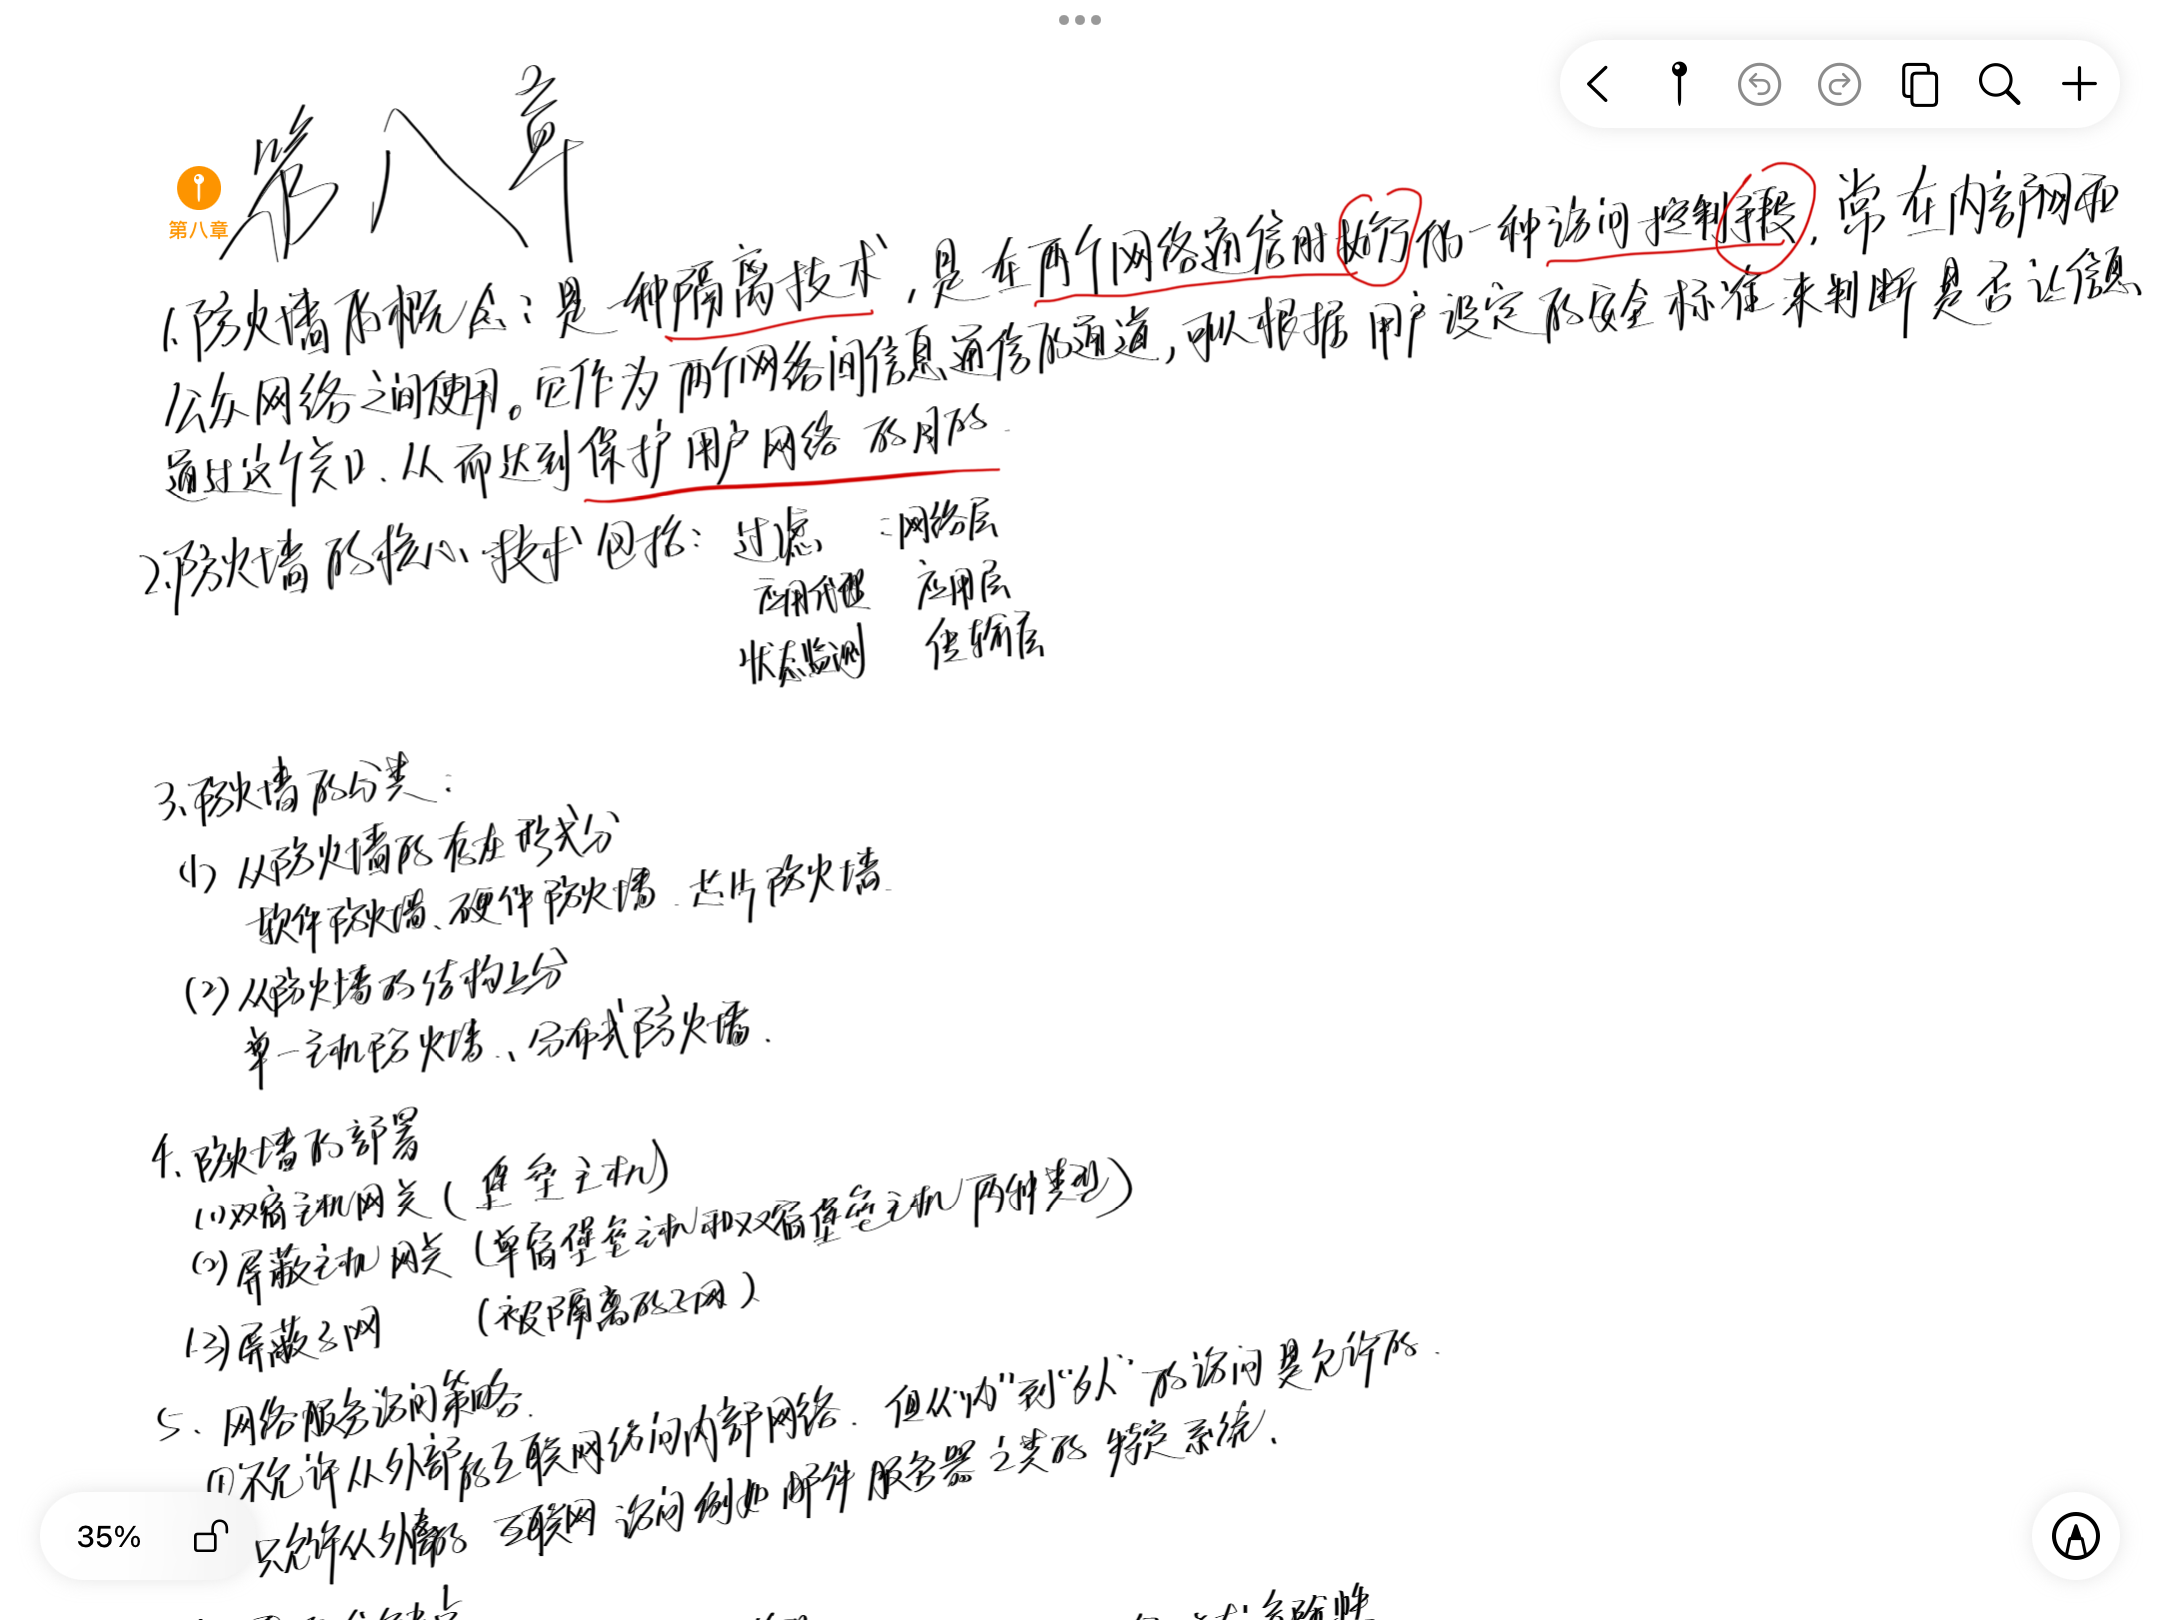 第八章
第八章
1.防火墙的概念：是一种隔离技术，是在两个网络通信时执行的一种访问控制手段，常在内部网和
公众网络之间使用。它作为两个网络间信息通信的通道，可以根据用户设定的安全标准来判断是否让信息
通过这个关口、从而达到保护用户网络的目的.
2.防火墙的核心技术包括：过滤 ：网络层
应用代理 应用层
状态监测 传输层
3、防火墙的分类：
(1) 从防火墙的存在形式分
软件防火墙、硬件防火墙、芯片防火墙.
(2) 从防火墙的结构上分
单一主机防火墙、分布式防火墙.
4、防火墙的部署
(1)双宿主机网关(堡垒主机)
(2)屏蔽主机网关(单宿堡垒主机和双宿堡垒主机两种类型)
(3)屏蔽子网 (被隔离的子网)
5、网络服务访问策略.
①不允许从外部的互联网访问内部网络．但从"内"到"外"的访问是允许的.
只允许从外部的互联网访问例如邮件服务器之类的特定系统、
35%